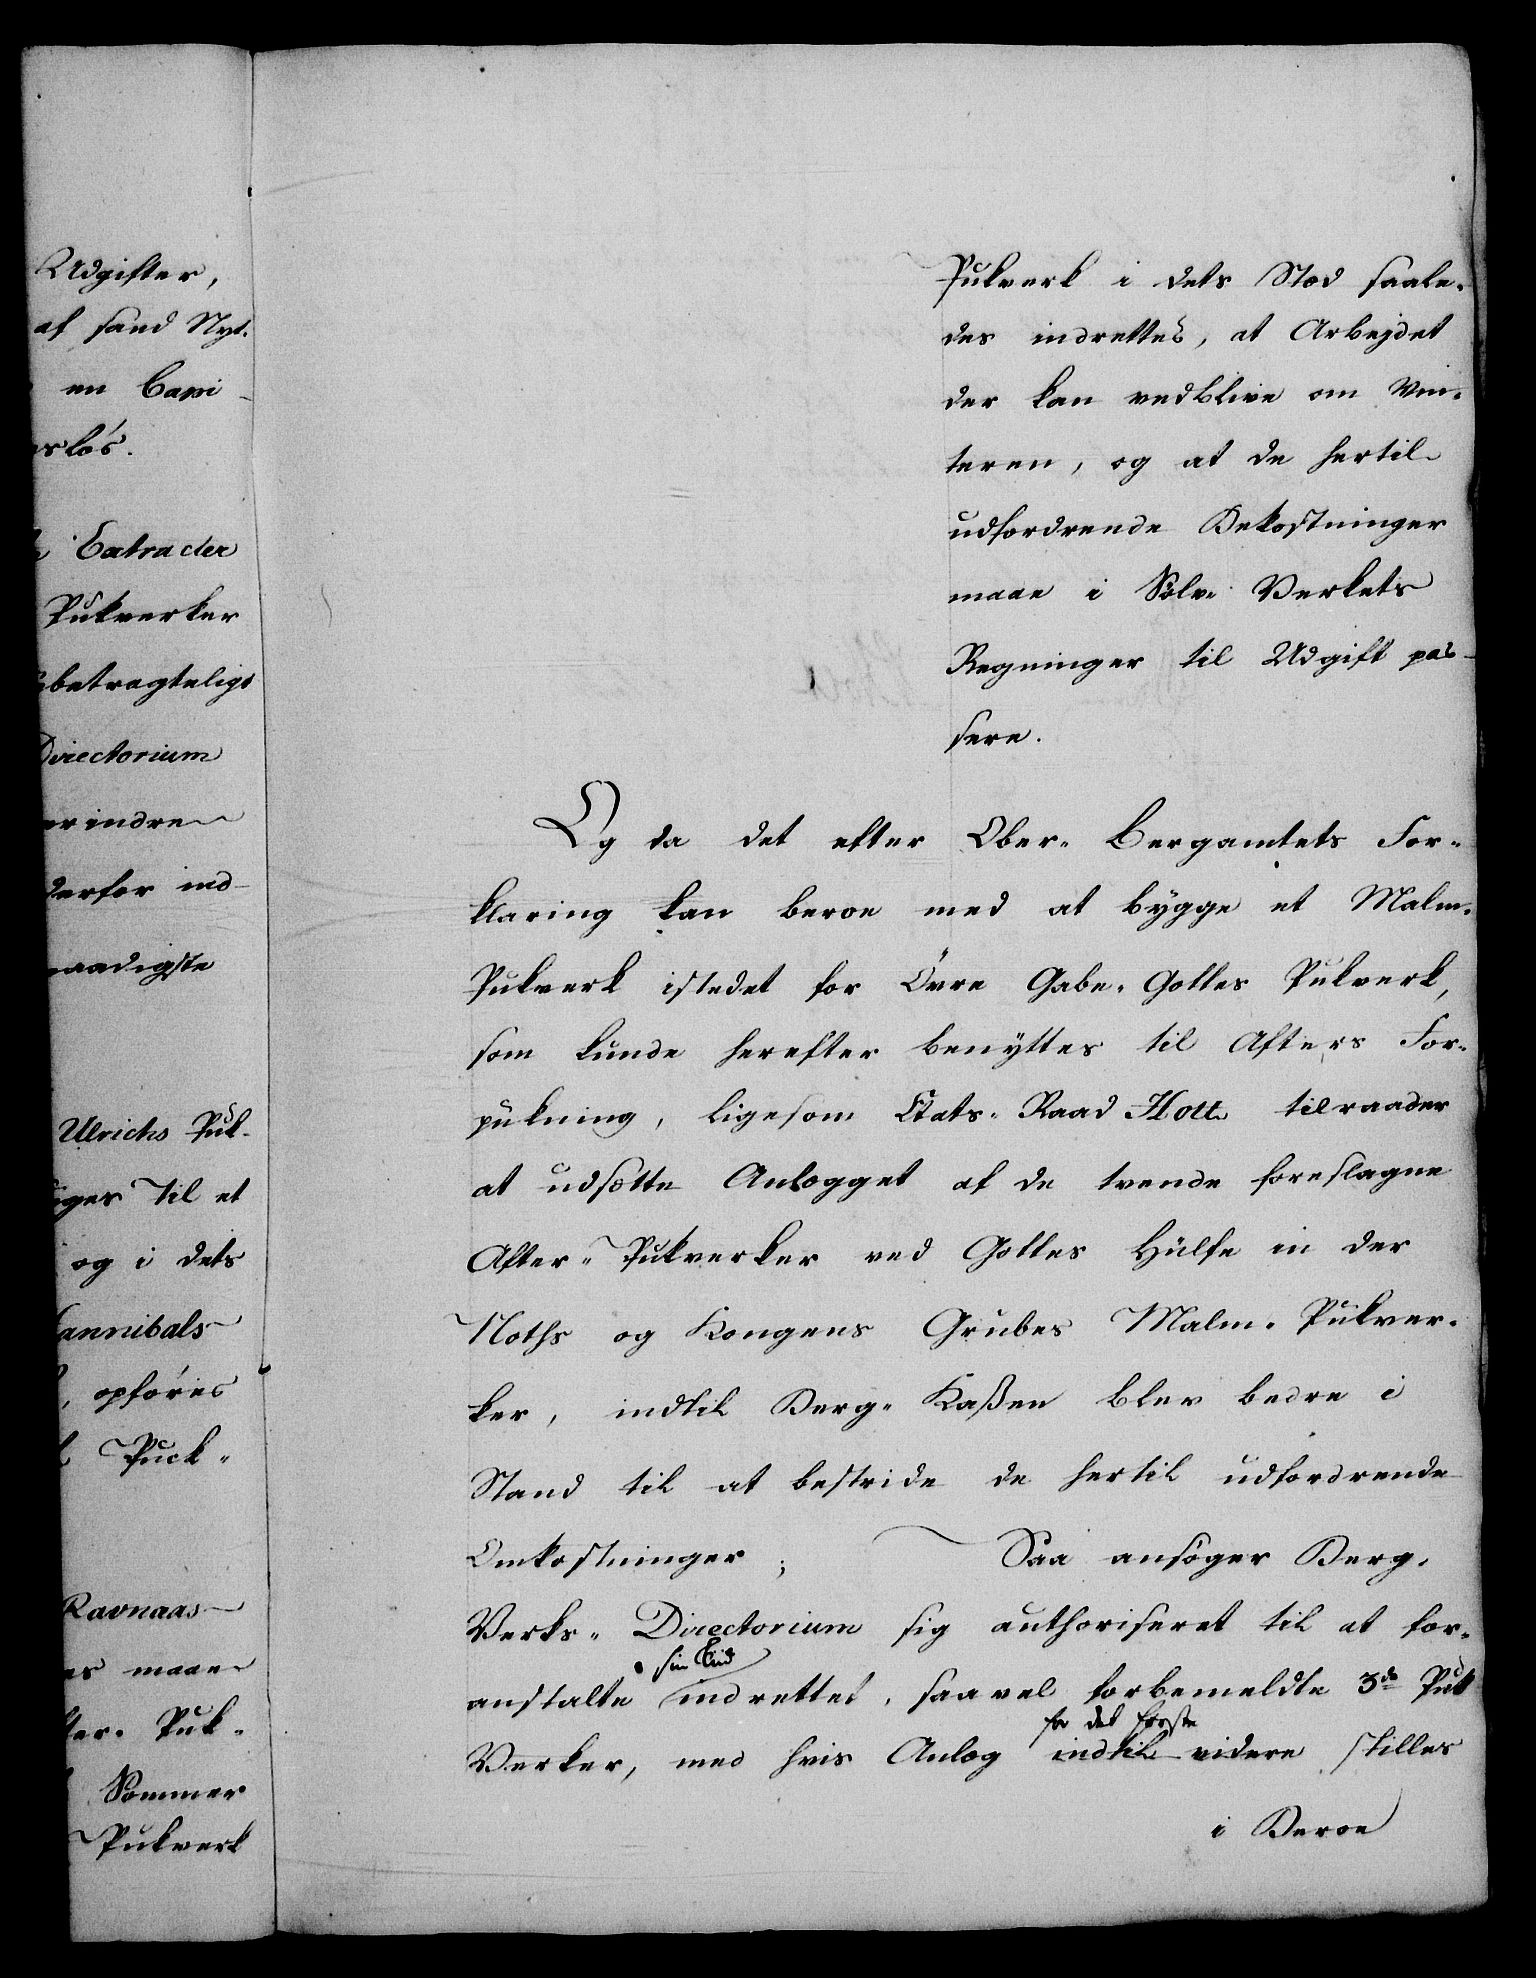 Udgifter,
af sand Nyt-
en Capi-
sløs.
Extracter
Pukverker
betragtelige
Directorium
erindre
derfor ind-
naadigste
Ulrichs Puk-
uges til et
og i dets
Hannibals
, opføres
Puck-
Ravnaas
es maae
fter- Puk-
Sommer
Pukverk
Pukverk i dets Stæd saale-
des indrettes, at Arbejdet
der kan vedblive om Vin-
teren, og at de hertil
udfordrende Bekostninger
maae i Sølv-Verkets
Regninger til Udgift pas-
sere.
Og da det efter Ober-Bergamtets For-
klaring kan beroe med at bygge et Malm-
Pukverk istedet for Øvre Gabe-Gottes Pukverk,
som kunde herefter benyttes til Afters For-
pukning, ligesom Etats-Raad Hott tilraader
at udsætte Anlægget af de tvende foreslagne
After-Pukverker ved Gottes Hülfe in der
Noths og Kongens Grubes Malm-Pukver-
ker, indtil Berg-Kaßen blev bedre i
Stand til at bestride de hertil udfordrende
Omkostninger; Saa ansøger Berg-
Verks-Directorium sig authoriseret til at for-
sin Tiid
anstalte indrettet, saavel forbemeldte 3de Puk
for det første
Verker, med hvis Anlæg indtil videre stilles
i Beroe